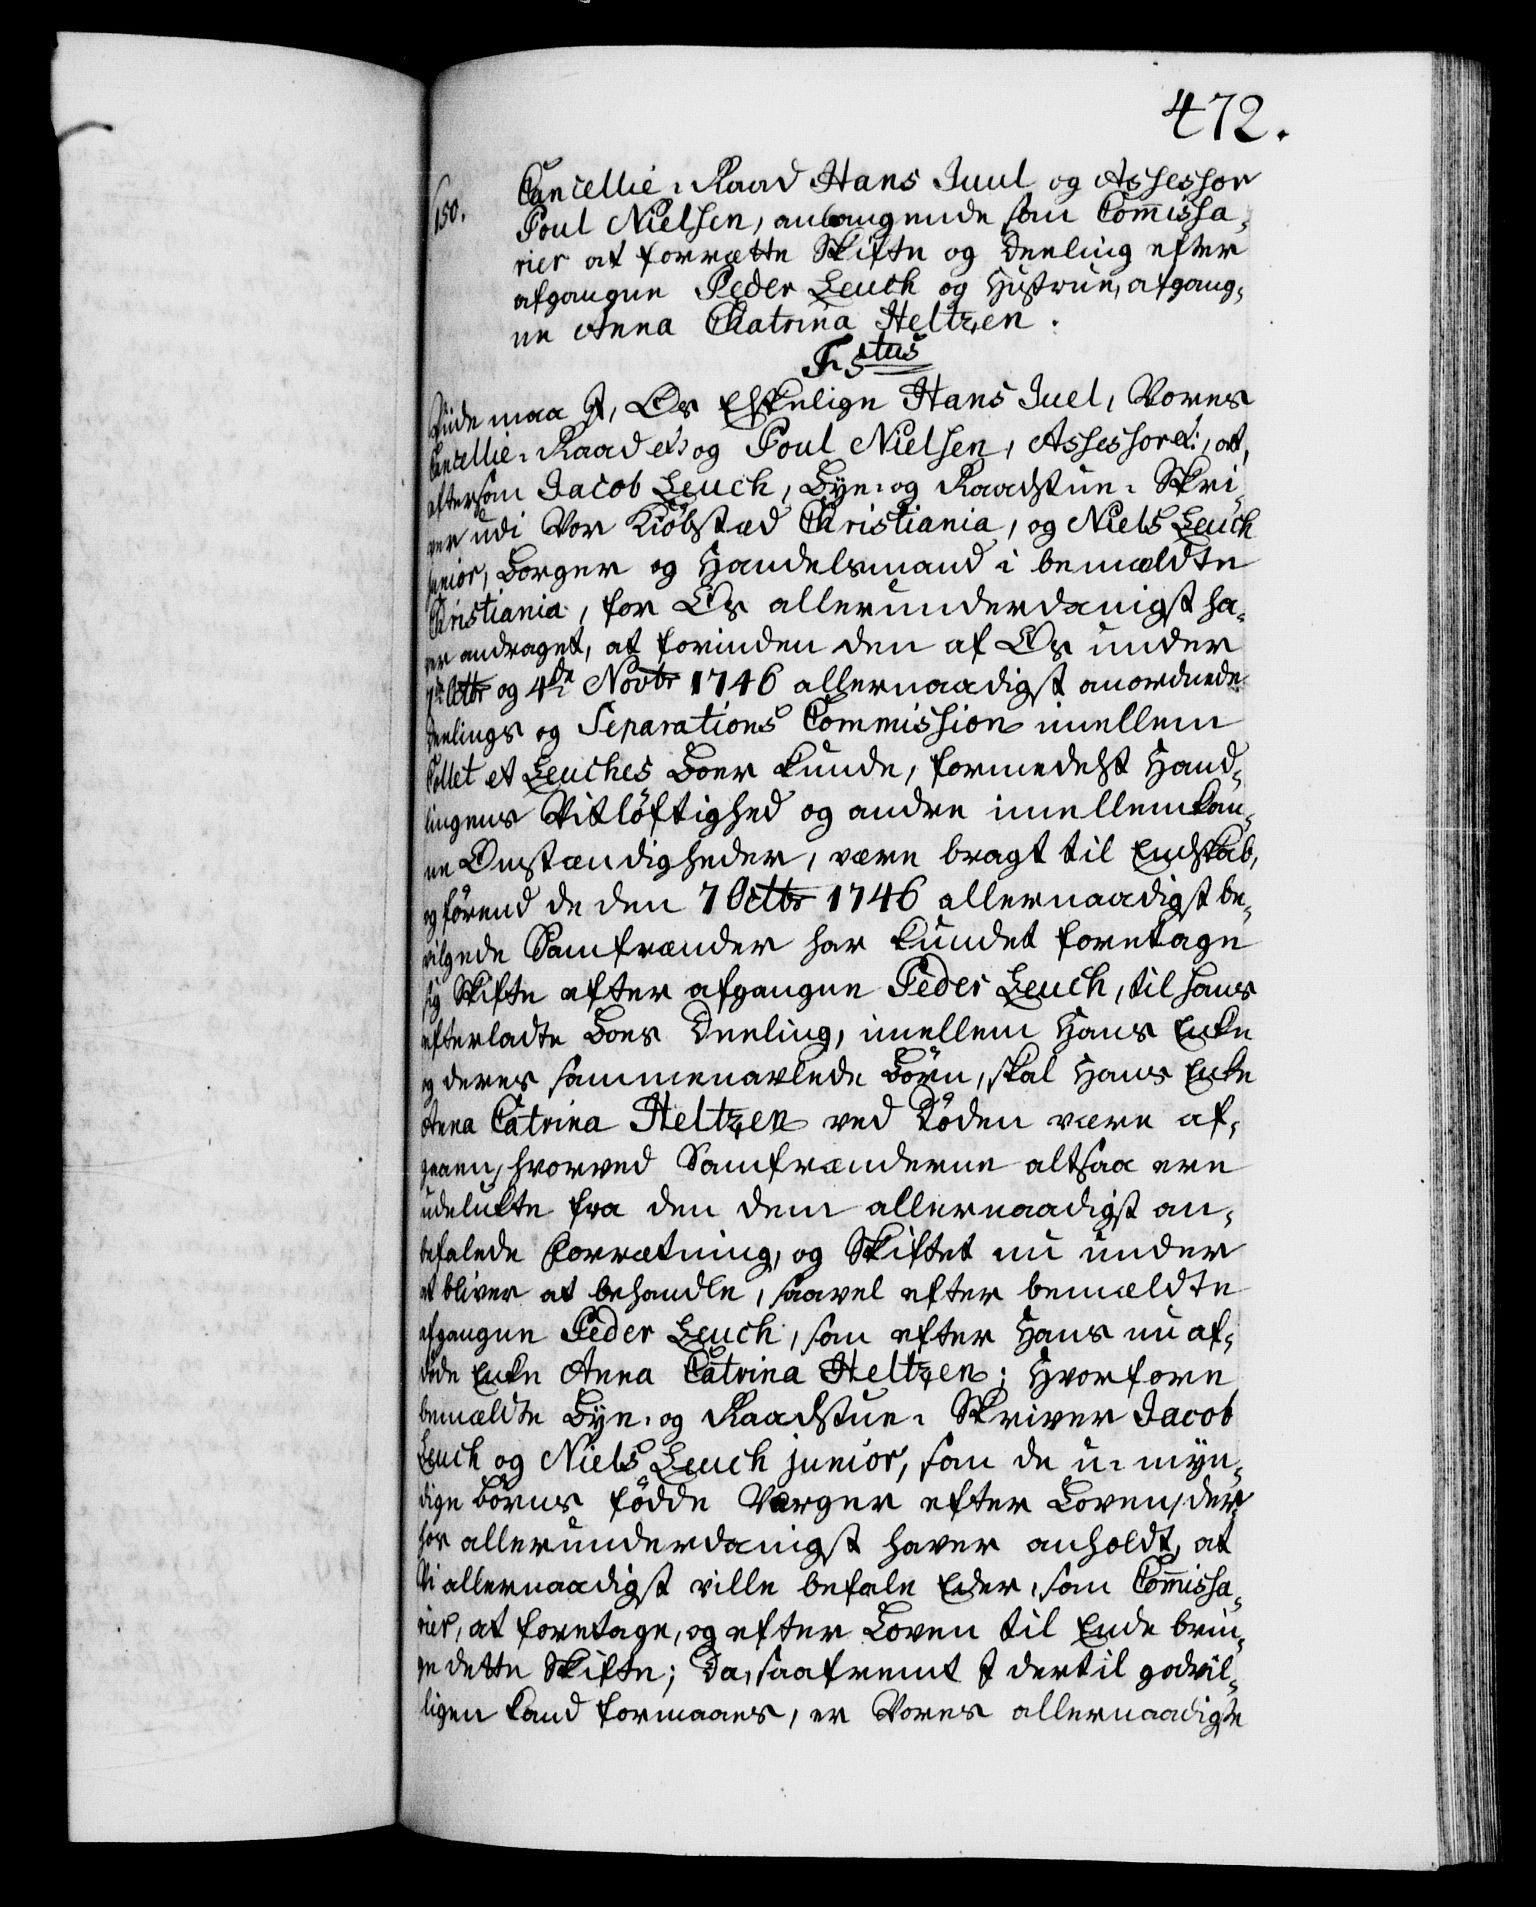 472.
150. Cancellie-Raad Hans Juul og Assessor
Poul Nielsen, anlangende som Commissa-
rier at forrætte Skifte og Deeling efter
afgangne Peder Leuch og Hustrue, afgang-
ne Anna Chatrina Heltzen.
F. 5tus
Viide maa I, Os Elskelige Hans Juel, Vores
Cancellie-Raad etc og Poul Nielsen, Assessor etc:, at,
eftersom Jacob Leuch, Bye- og Raadstue-Skri-
ver udi Vor Kiöbstæd Christiania, og Niels Leuch
junior, Borger og Handelsmand i bemældte
Christiania, for Os allerunderdanigst ha-
ver andraget, at forinden den af Os under
7de Octbr og 4de Novbr 1746 allernaadigst anordnede
Deelings og Separations Commission imellem
Collet et Leuches Boer kunde, formedelst Hand-
lingens Vitlöftighed og andre imellemkom-
ne Omstændigheder, være bragt til Endskab,
og förend de den 7 Octbr 1746 allernaadigst be-
vilgede Samfrænder har kundet foretage
sig Skifte efter afgangne Peder Leuch, til hans
efterladte Boes Deeling, imellem Hans Enke
og deres sammenavlede Börn, skal Hans Enke
Anna Catrina Heltzen ved Döden være af-
gaaen, hvorved Samfrænderne altsaa ere
udelukte fra den dem allernaadigst an-
befalede Forrætning, og Skiftet nu under
et bliver at behandle, saavel efter bemældte
afgangne Peder Leuch, som efter Hans nu af-
döde Enke Anna Catrina Heltzen; Hvorfore
bemældte Bye- og Raadstue-Skriver Jacob
Leuch og Niels Leuch junior, som de u-myn-
dige Börns födde Værger efter Loven, der-
hos allerunderdanigst haver anholdt, at
Vi allernaadigst ville befale Eder, som Commissa-
rier, at foretage, og efter Loven til Ende brin-
ge dette Skifte; Da, saafremt I dertil godvil-
ligen kand formaaes, er Vores allernaadigste